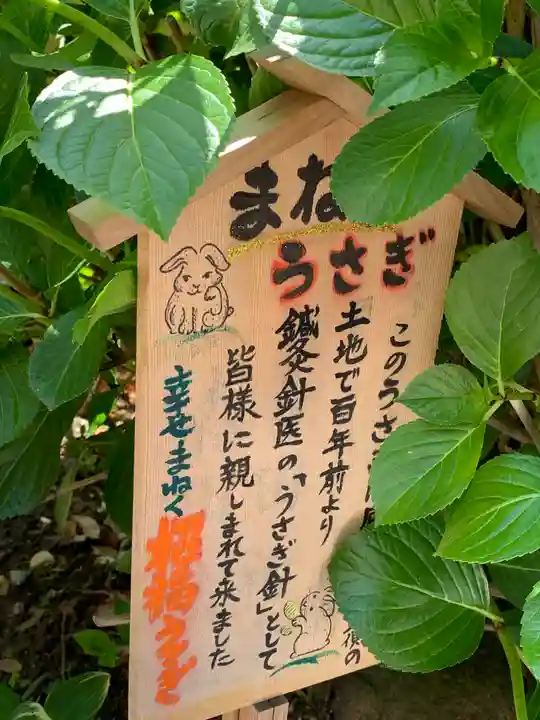 まね
うさぎ
このうさ
後の
土地で百年前より
鍼灸針医の「うさぎ針」として
皆様に親しまれて来ました
幸せまねく
招福うさぎ